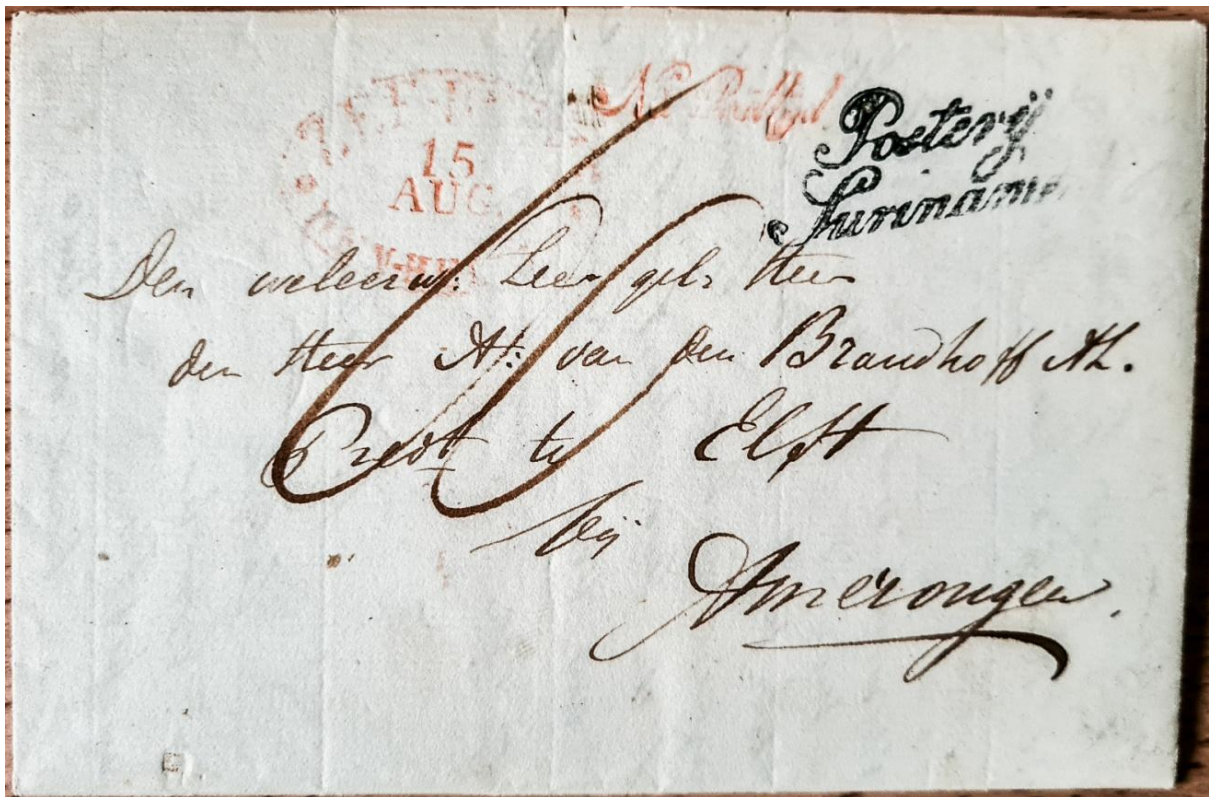 Na Posttijd
Posterij
Suriname
15
AUG
Den weleerw: Zeer gel: Heer
den Heer A: van den Brandhoff AZ.
Predt te Elst
bij
Amerongen.